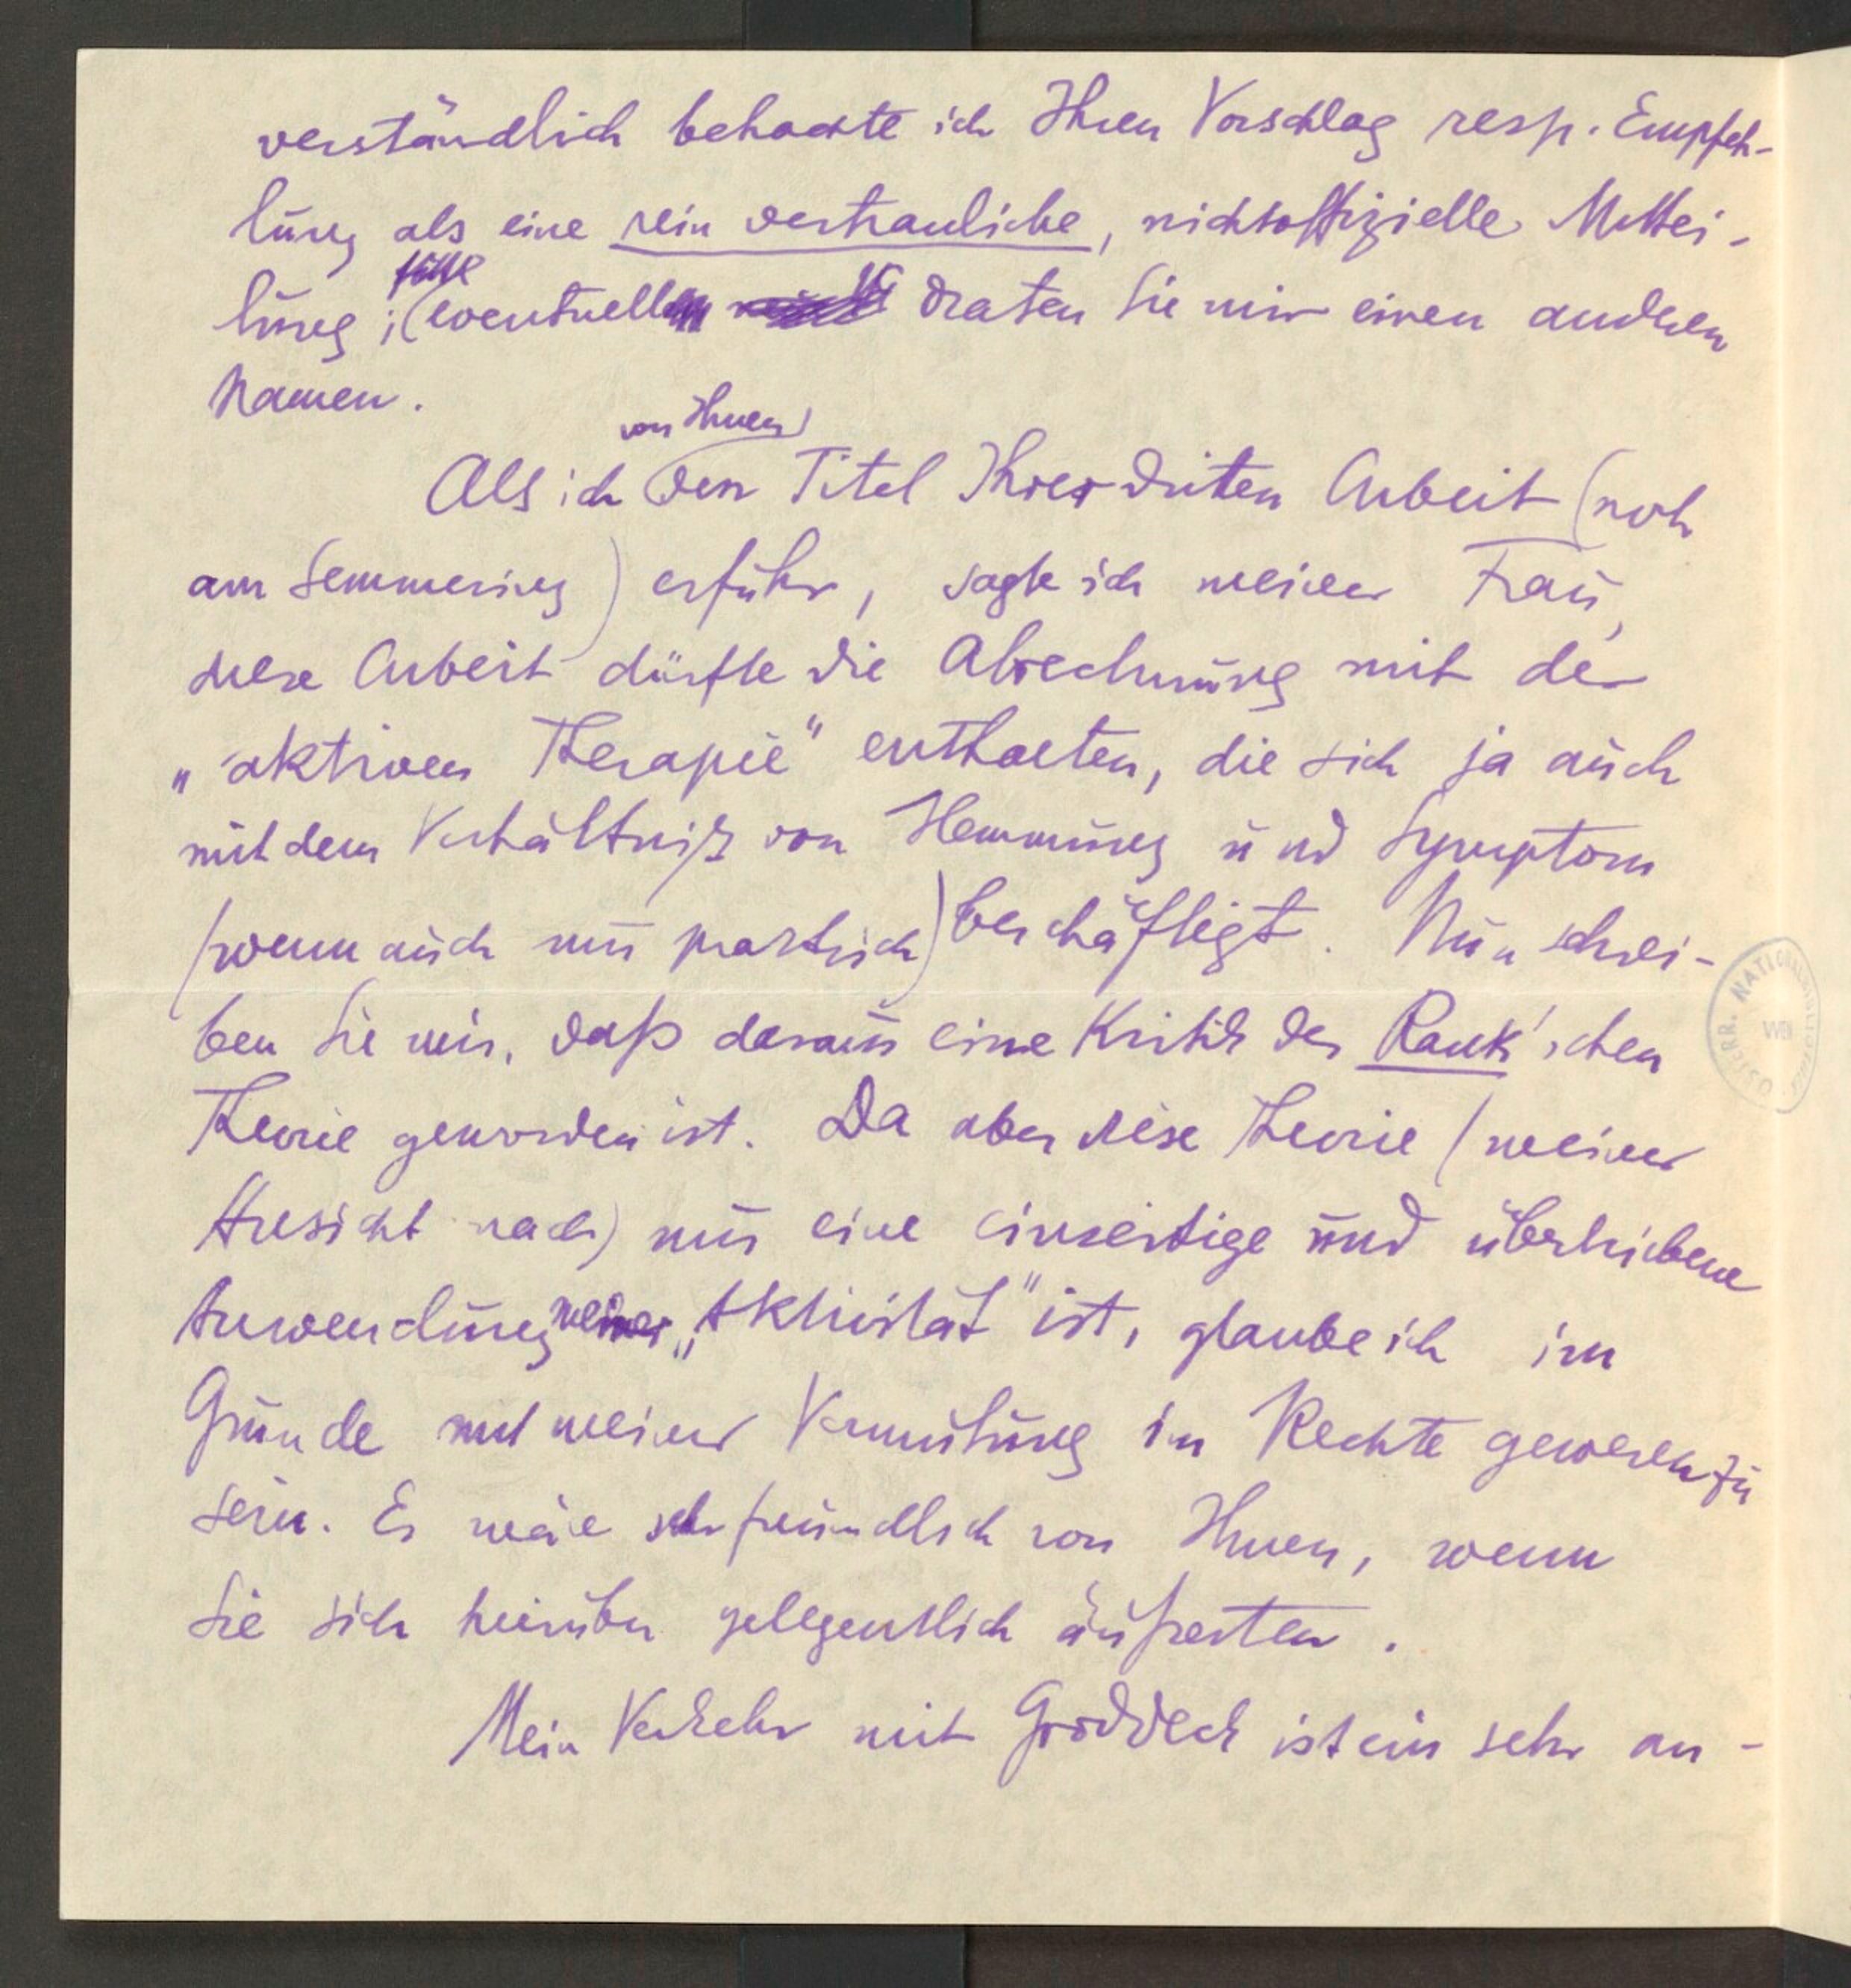 verständlich behandle ich Ihren Vorschlag resp. Empfeh-
lung als eine rein vertrauliche, nichtoffizielle Mittei-
lung; bitte eventuell draten Sie mir einen anderen
Namen.
Als ich von Ihnen den Titel Ihrer dritten Arbeit (noch
am Semmering) erfuhr, sagte ich meiner Frau,
diese Arbeit dürfte die Abrechnung mit der
„aktiven Therapie“ enthalten, die sich ja auch
mit dem Verhältniß von Hemmung und Symptom
(wenn auch nur praktisch) beschäftigt. Nun schrei-
ben Sie mir, daß daraus eine Kritik der Rank'schen
Theorie geworden ist. Da aber diese Theorie (meiner
Ansicht nach) nur eine einseitige und übertriebene
Anwendung meiner „Aktivität“ ist, glaube ich im
Grunde mit meiner Vermutung im Rechte gewesen zu
sein. Es wäre sehr freundlich von Ihnen, wenn
Sie sich hierüber gelegentlich äußerten.
Mein Verkehr mit Groddeck ist ein sehr an-
ÖSTERR. NATIONALBIBLIOTHEK